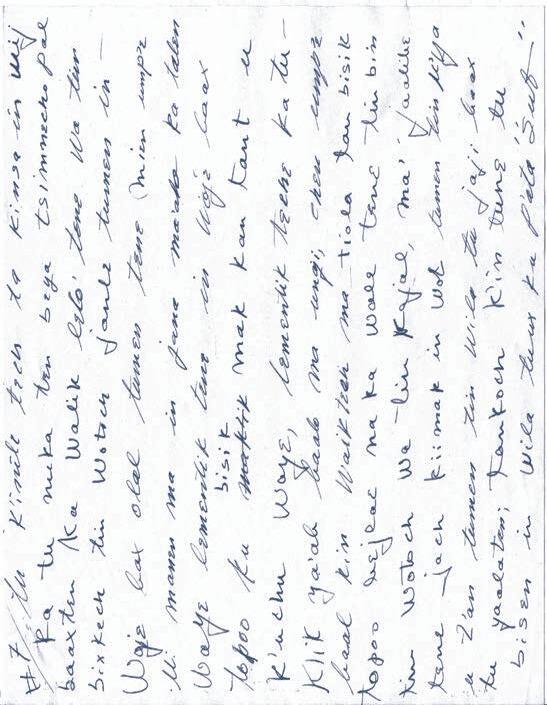 #7 tu Kinile tech ta Kinsa in Mij
Ka tu nuka ten beya tsimmechopal
baaxten Ka Walik lelo' tene Wa tun
bixkech tin Wotoch jante tumen in-
Woje bax olal tumen tene mien umpe
u manen ma in jana maaka ka talen
Waye lementik tene in Woje baax
bisik
topoo ku maktik mak kan tant u
K'uchu Waye, lementik teche ka tu-
Klik ya'ab baab ma ungi, chen umpe
baal kin Waiktech ma tiola tan bisik
topoo bejlae na ka Wale tene tin bin
tin Wotoch Wa tin Kajal, ma' Jaalibe
tene jach kiimak in Wol tumen tin k'ya
u z'an tumen tin Wila tu jaji baax
tu yaalaten; tankoch K'in tune tu
bisen in Wila tuux ku p'ata "Sut"